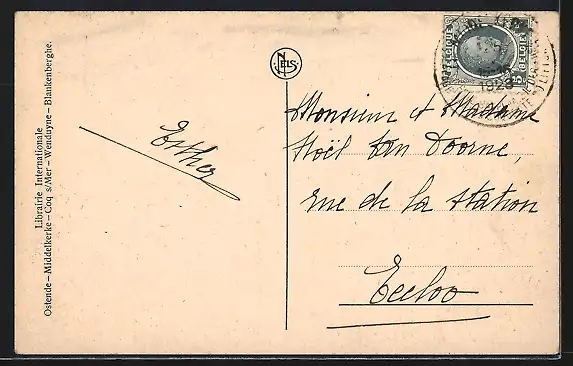 Librairie Internationale
Ostende – Middelkerke – Coq s/Mer – Wenduyne – Blankenberghe.
Esther
NELS
BELGIQUE
5
BELGIË
1926
Monsieur et Madame
Noël Van Doorne,
rue de la station
Eecloo